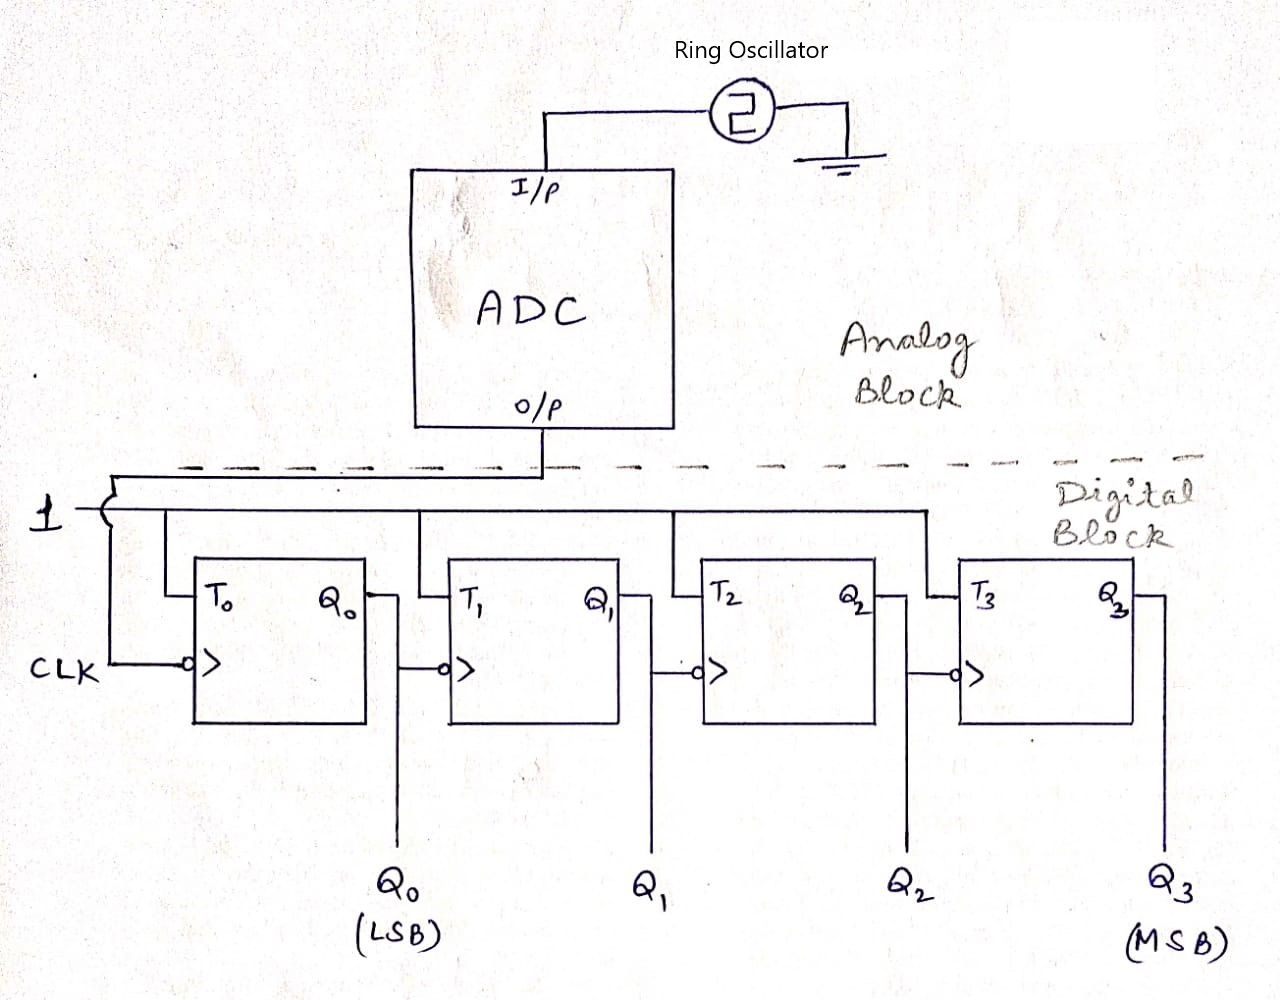 Ring Oscillator
I/P
ADC
O/P
Analog
Block
Digital
Block
1
T0 Q0 T1 Q1 T2 Q2 T3 Q3
CLK
Q0 Q1 Q2 Q3
(LSB) (MSB)